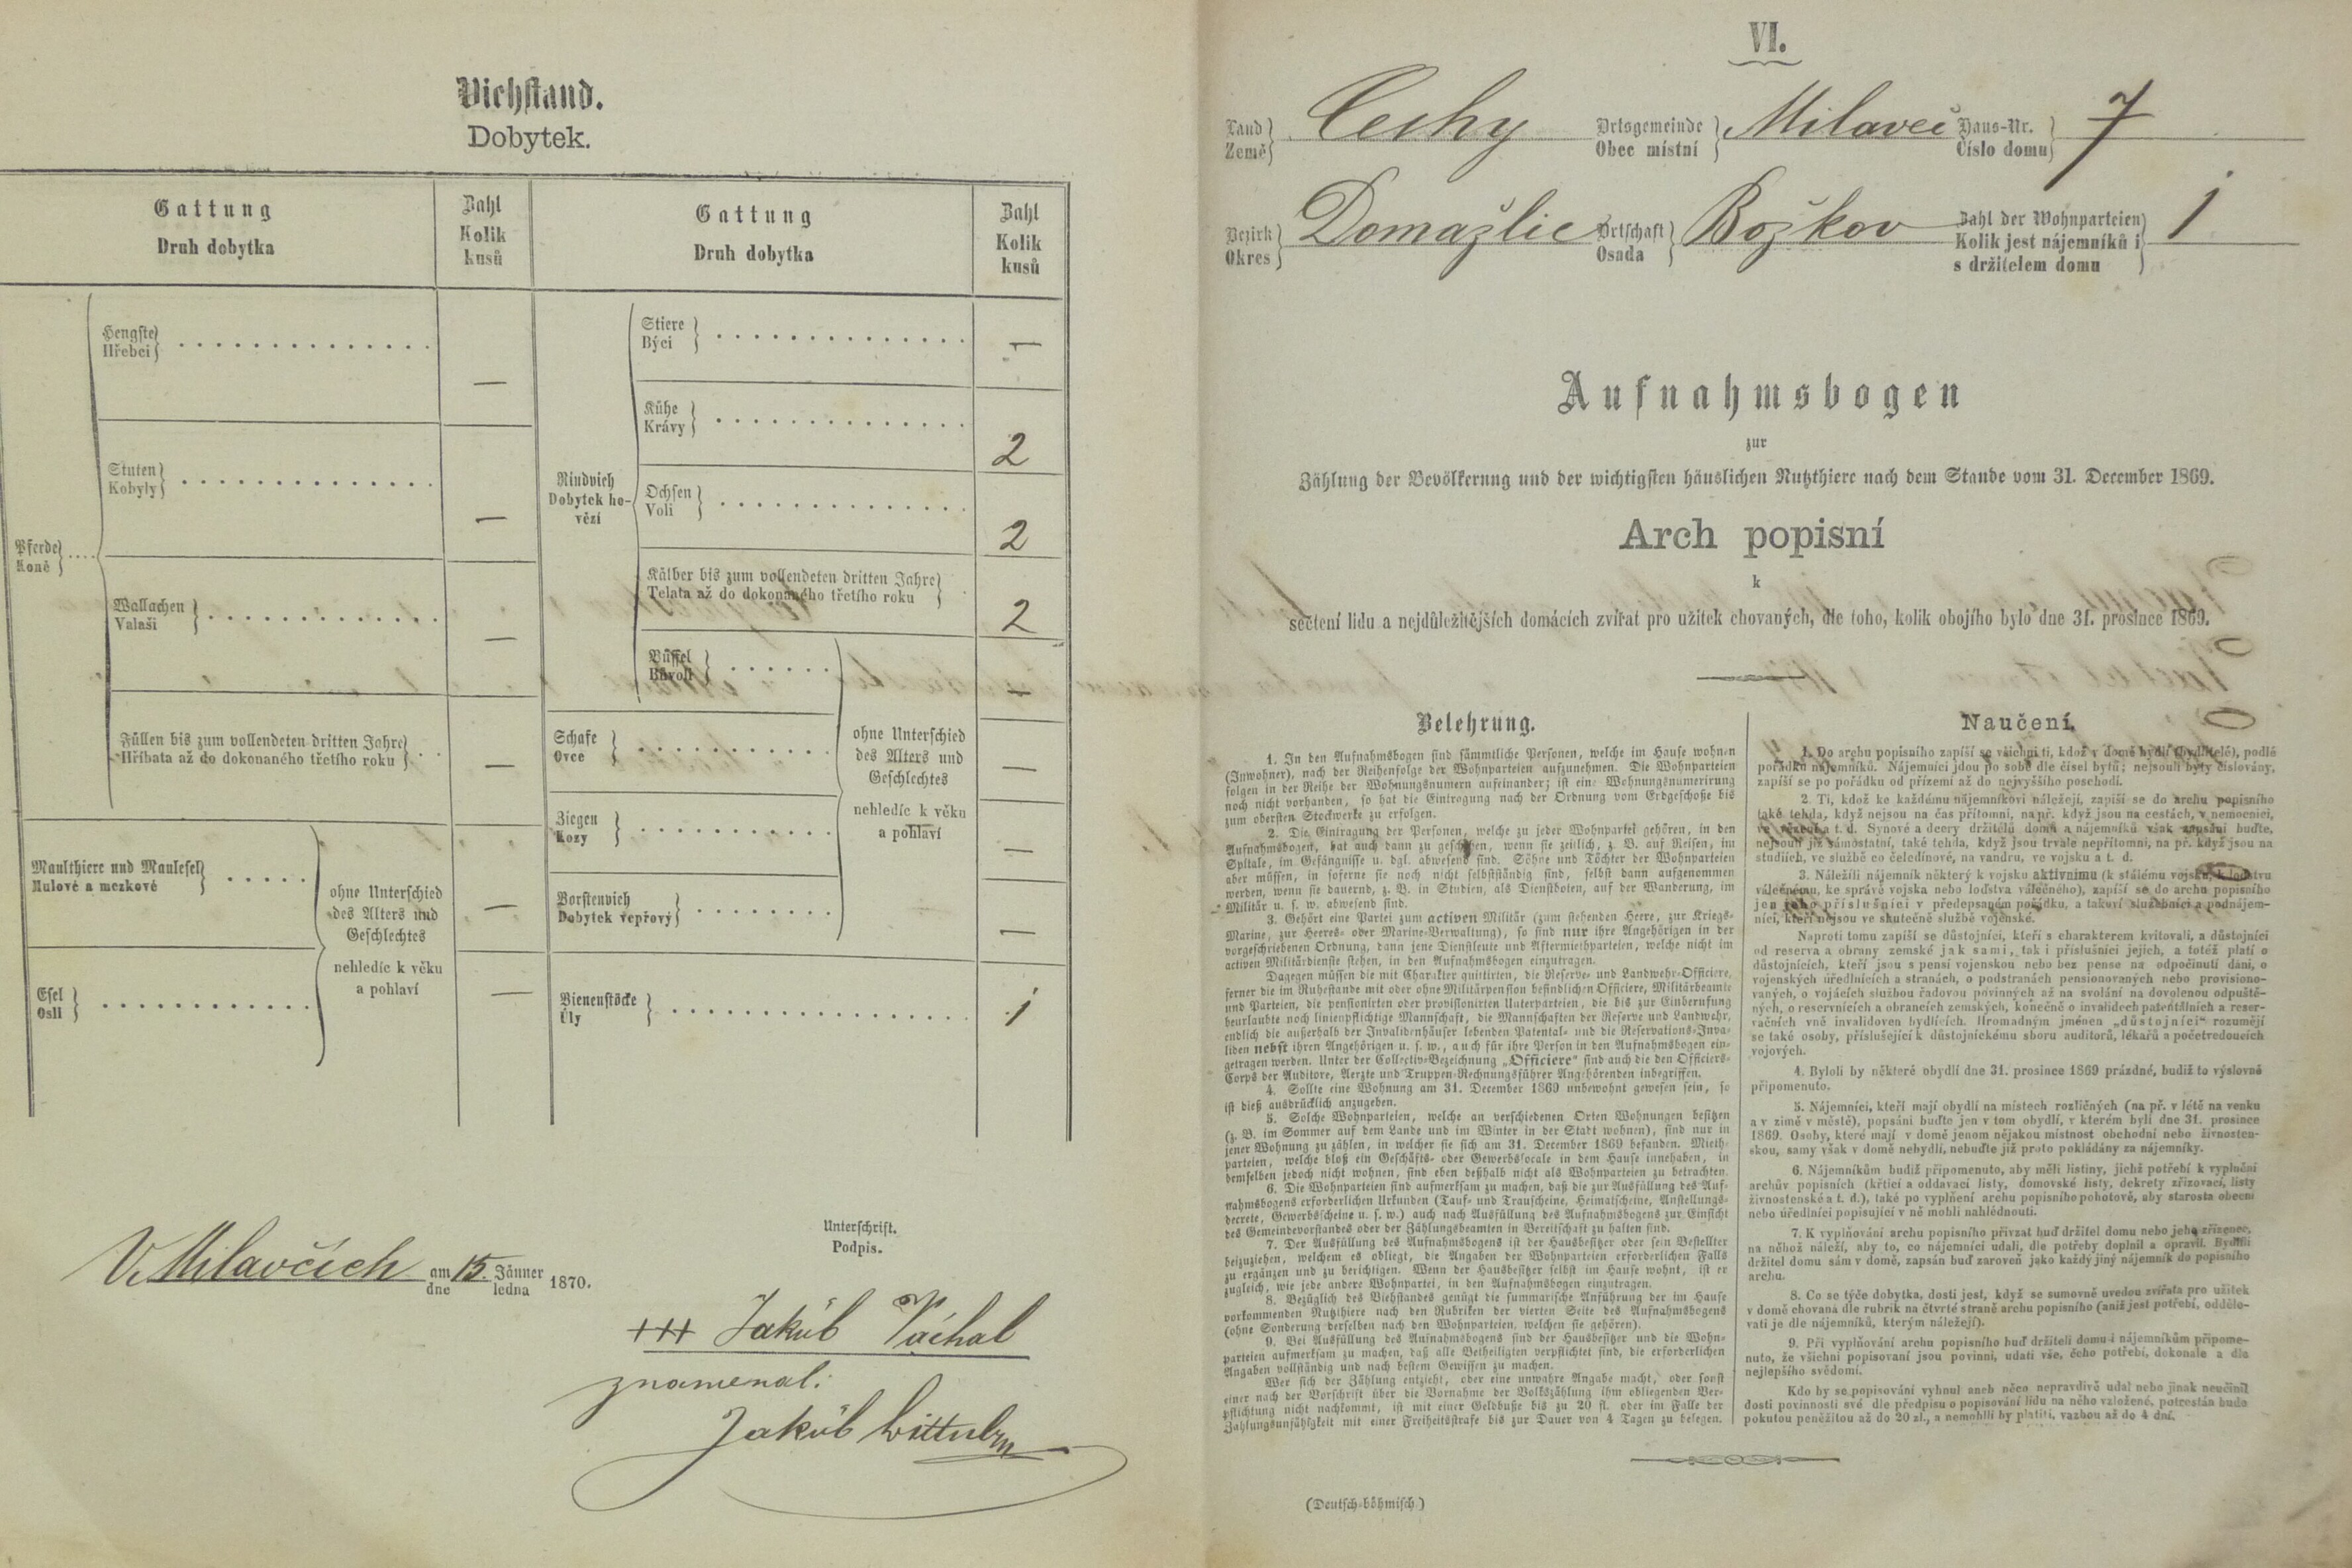 Viehstand.
Dobytek.
Gattung
Druh dobytka
Zahl
Kolik
kusů
Gattung
Druh dobytka
Zahl
Kolik
kusů
Pferde
Koně
Hengste
Hřebci
—
Stuten
Kobyly
—
Wallachen
Valaši
—
Füllen bis zum vollendeten dritten Jahre
Hříbata až do dokonaného třetího roku
—
Maulthiere und Maulesel
Mulové a mezkové
—
Esel
Osli
—
ohne Unterschied
des Alters und
Geschlechtes
nehledíc k věku
a pohlaví
Rindvieh
Dobytek ho-
vězí
Stiere
Býci
—
Kühe
Krávy
2
Ochsen
Voli
2
Kälber bis zum vollendeten dritten Jahre
Telata až do dokonaného třetího roku
2
Büffel
Bůvoli
—
Schafe
Ovce
—
Ziegen
Kozy
—
Borstenvieh
Dobytek vepřový
—
ohne Unterschied
des Alters und
Geschlechtes
nehledíc k věku
a pohlaví
Bienenstöcke
Úly
1
V Milavčích am dne 15. Jänner ledna 1870.
Unterschrift.
Podpis.
+++ Jakub Váchal
znamenal:
Jakub
VI.
Land
Země
Čechy
Ortsgemeinde
Obec místní
Milaveč
Haus-Nr.
Číslo domu
7
Bezirk
Okres
Domažlic
Ortschaft
Osada
Božkov
Zahl der Wohnparteien
Kolik jest nájemníků i
s držitelem domu
1
Aufnahmsbogen
zur
Zählung der Bevölkerung und der wichtigsten häuslichen Nutzthiere nach dem Stande vom 31. December 1869.
Arch popisní
k
sečtení lidu a nejdůležitějších domácích zvířat pro užitek chovaných, dle toho, kolik obojího bylo dne 31. prosince 1869.
Belehrung.
1. In den Aufnahmsbogen sind sämmtliche Personen, welche im Hause wohnen
(Inwohner), nach der Reihenfolge der Wohnparteien aufzunehmen. Die Wohnparteien
folgen in der Reihe der Wohnungsnumern aufeinander; ist eine Wohnungsnumerirung
noch nicht vorhanden, so hat die Eintragung nach der Ordnung vom Erdgeschoße bis
zum obersten Stockwerke zu erfolgen.
2. Die Eintragung der Personen, welche zu jeder Wohnpartei gehören, in den
Aufnahmsbogen, hat auch dann zu geschehen, wenn sie zeitlich, z. B. auf Reisen, im
Spitale, im Gefängnisse u. dgl. abwesend sind. Söhne und Töchter der Wohnparteien
aber müssen, in soferne sie noch nicht selbstständig sind, selbst dann aufgenommen
werden, wenn sie dauernd, z. B. in Studien, als Dienstboten, auf der Wanderung, im
Militär u. s. w. abwesend sind.
3. Gehört eine Partei zum activen Militär (zum stehenden Heere, zur Kriegs-
Marine, zur Heeres- oder Marine-Verwaltung), so sind nur ihre Angehörigen in der
vorgeschriebenen Ordnung, dann jene Dienstleute und Aftermiethparteien, welche nicht im
activen Militärdienste stehen, in den Aufnahmsbogen einzutragen.
Dagegen müssen die mit Charakter quittirten, die Reserve- und Landwehr-Officiere,
ferner die im Ruhestande mit oder ohne Militärpension befindlichen Officiere, Militärbeamte
und Parteien, die pensionirten oder provisionirten Unterparteien, die bis zur Einberufung
beurlaubte noch linienpflichtige Mannschaft, die Mannschaften der Reserve und Landwehr,
endlich die außerhalb der Invalidenhäuser lebenden Patental- und die Reservations-Inva-
liden nebst ihren Angehörigen u. s. w., auch für ihre Person in den Aufnahmsbogen ein-
getragen werden. Unter der Collectiv-Bezeichnung „Officiere“ sind auch die den Officiers-
Corps der Auditore, Aerzte und Truppen-Rechnungsführer Angehörenden inbegriffen.
4. Sollte eine Wohnung am 31. December 1869 unbewohnt gewesen sein, so
ist dieß ausdrücklich anzugeben.
5. Solche Wohnparteien, welche an verschiedenen Orten Wohnungen besitzen
(z. B. im Sommer auf dem Lande und im Winter in der Stadt wohnen), sind nur in
jener Wohnung zu zählen, in welcher sie sich am 31. December 1869 befanden. Mieth-
parteien, welche bloß ein Geschäfts- oder Gewerbslocale in dem Hause innehaben, in
demselben jedoch nicht wohnen, sind eben deßhalb nicht als Wohnparteien zu betrachten.
6. Die Wohnparteien sind aufmerksam zu machen, daß die zur Ausfüllung des Auf-
nahmsbogens erforderlichen Urkunden (Tauf- und Trauscheine, Heimatscheine, Anstellungs-
decrete, Gewerbsscheine u. s. w.) auch nach Ausfüllung des Aufnahmsbogens zur Einsicht
des Gemeindevorstandes oder der Zählungsbeamten in Bereitschaft zu halten sind.
7. Der Ausfüllung des Aufnahmsbogens ist der Hausbesitzer oder sein Bestellter
beizuziehen, welchem es obliegt, die Angaben der Wohnparteien erforderlichen Falls
zu ergänzen und zu berichtigen. Wenn der Hausbesitzer selbst im Hause wohnt, ist er
zugleich, wie jede andere Wohnpartei, in den Aufnahmsbogen einzutragen.
8. Bezüglich des Viehstandes genügt die summarische Anführung der im Hause
vorkommenden Nutzthiere nach den Rubriken der vierten Seite des Aufnahmsbogens
(ohne Sonderung derselben nach den Wohnparteien, welchen sie gehören).
9. Bei Ausfüllung des Aufnahmsbogens sind der Hausbesitzer und die Wohn-
parteien aufmerksam zu machen, daß alle Betheiligten verpflichtet sind, die erforderlichen
Angaben vollständig und nach bestem Gewissen zu machen.
Wer sich der Zählung entzieht, oder eine unwahre Angabe macht, oder sonst
einer nach der Vorschrift über die Vornahme der Volkszählung ihm obliegenden Ver-
pflichtung nicht nachkommt, ist mit einer Geldbuße bis zu 20 fl. oder im Falle der
Zahlungsunfähigkeit mit einer Freiheitsstrafe bis zur Dauer von 4 Tagen zu belegen.
Naučení.
1. Do archu popisního zapíší se všichni ti, kdož v domě bydlí (bydlitelé), podlé
pořádku nájemníků. Nájemníci jdou po sobě dle čísel bytů; nejsouli byty číslovány,
zapíší se po pořádku od přízemí až do nejvyššího poschodí.
2. Ti, kdož ke každému nájemníkovi náležejí, zapíší se do archu popisního
také tehda, když nejsou na čas přítomni, na př. když jsou na cestách, v nemocnici,
ve vězení a t. d. Synové a dcery držitelů domů a nájemníků však zapsáni buďte,
nejsouli již samostatní, také tehda, když jsou trvale nepřítomni, na př. když jsou na
studiích, ve službě co čeledínové, na vandru, ve vojsku a t. d.
3. Náležíli nájemník některý k vojsku aktivnimu (k stálému vojsku, k loďstvu
válečnému, ke správě vojska nebo loďstva válečného), zapíší se do archu popisního
jen jeho příslušníci v předepsaném pořádku, a takoví služebníci a podnájem-
níci, kteří nejsou ve skutečné službě vojenské.
Naproti tomu zapíší se důstojníci, kteří s charakterem kvitovali, a důstojníci
od reserva a obrany zemské jak sami, tak i příslušníci jejich, a totéž platí o
důstojnících, kteří jsou s pensí vojenskou nebo bez pense na odpočinutí dáni, o
vojenských úřednících a stranách, o podstranách pensionovaných nebo provisiono-
vaných, o vojácích službou řadovou povinných až na svolání na dovolenou odpuště-
ných, o reservnících a obrancích zemských, konečně o invalidech patentálních a reser-
vačních vně invalidoven bydlících. Hromadným jménem „důstojníci“ rozumějí
se také osoby, příslušející k důstojnickému sboru auditorů, lékařů a početvedoucích
vojových.
4. Byloli by některé obydlí dne 31. prosince 1869 prázdné, budiž to výslovně
připomenuto.
5. Nájemníci, kteří mají obydlí na místech rozličných (na př. v létě na venku
a v zimě v městě), popsáni buďte jen v tom obydlí, v kterém byli dne 31. prosince
1869. Osoby, které mají v domě jenom nějakou místnost obchodní nebo živnosten-
skou, samy však v domě nebydlí, nebuďte již proto pokládány za nájemníky.
6. Nájemníkům budiž připomenuto, aby měli listiny, jichž potřebí k vyplnění
archův popisních (křticí a oddavací listy, domovské listy, dekrety zřizovací, listy
živnostenské a t. d.), také po vyplnění archu popisního pohotově, aby starosta obecní
nebo úředníci popisující v ně mohli nahlédnouti.
7. K vyplňování archu popisního přivzat buď držitel domu nebo jeho zřízenec,
na něhož náleží, aby to, co nájemníci udali, dle potřeby doplnil a opravil. Bydlíli
držitel domu sám v domě, zapsán buď zároveň jako každý jiný nájemník do popisního
archu.
8. Co se týče dobytka, dosti jest, když se sumovně uvedou zvířata pro užitek
v domě chovaná dle rubrik na čtvrté straně archu popisního (aniž jest potřebí, oddělo-
vati je dle nájemníků, kterým náležejí).
9. Při vyplňování archu popisního buď držiteli domu i nájemníkům připome-
nuto, že všichni popisovaní jsou povinni, udati vše, čeho potřebí, dokonale a dle
nejlepšího svědomí.
Kdo by se popisování vyhnul aneb něco nepravdivě udal nebo jinak neučinil
dosti povinnosti své dle předpisu o popisování lidu na něho vzložené, potrestán bude
pokutou peněžitou až do 20 zl., a nemohlli by platiti, vazbou až do 4 dní.
(Deutsch-böhmisch)